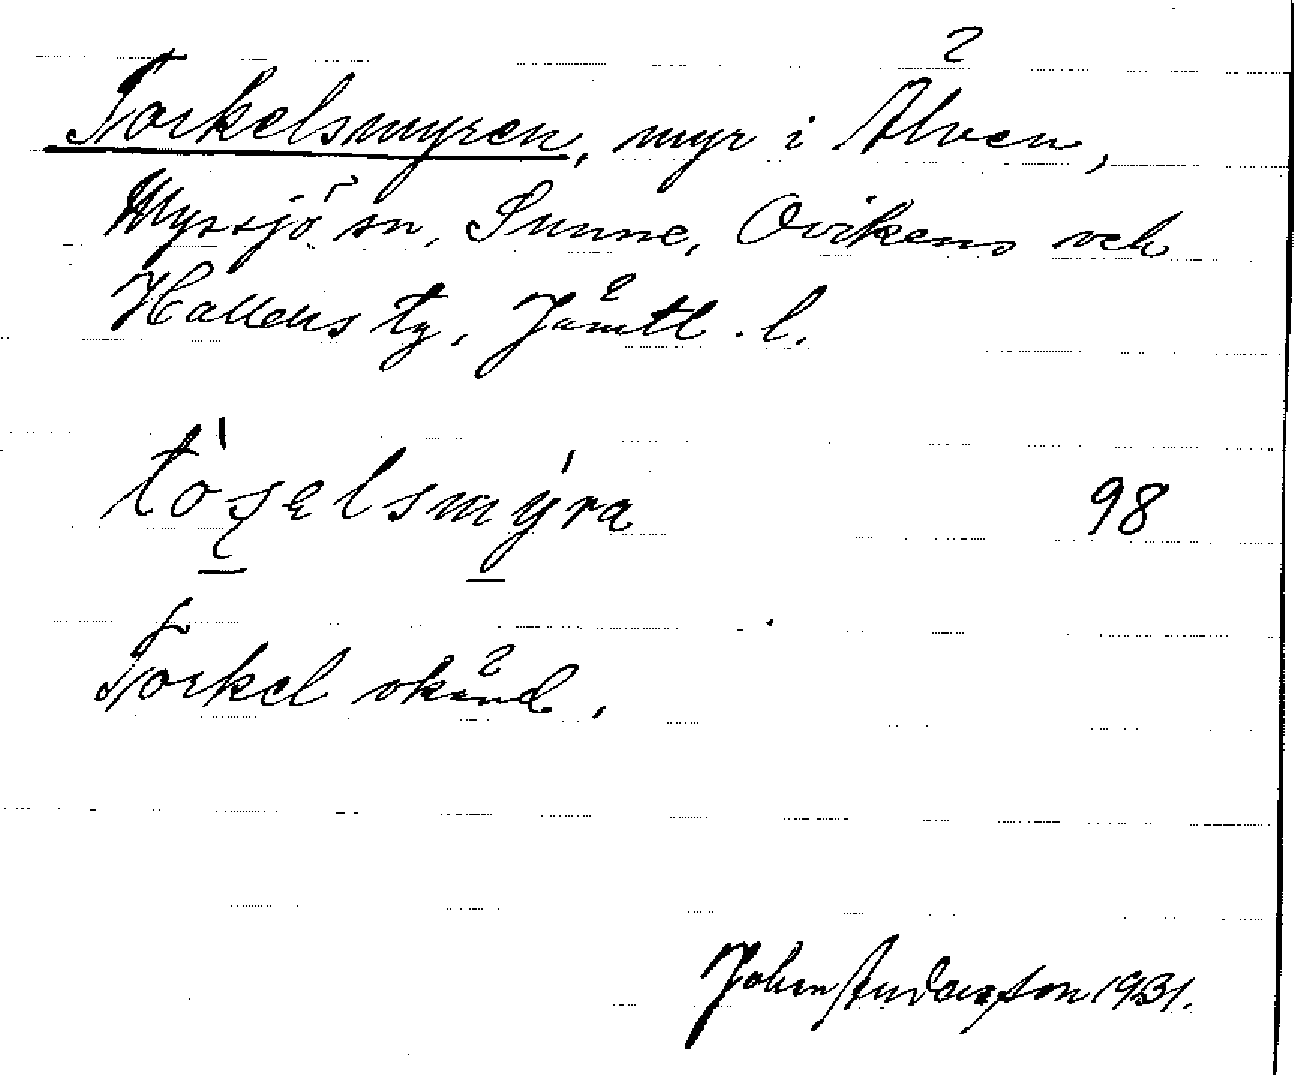 Torkelsmyren, myr i Älven,
Myssjö sn, Sunne, Ovikens och
Hallens tg, Jämtl. l.
98
Torkel okänd.
John Andersson 1931.